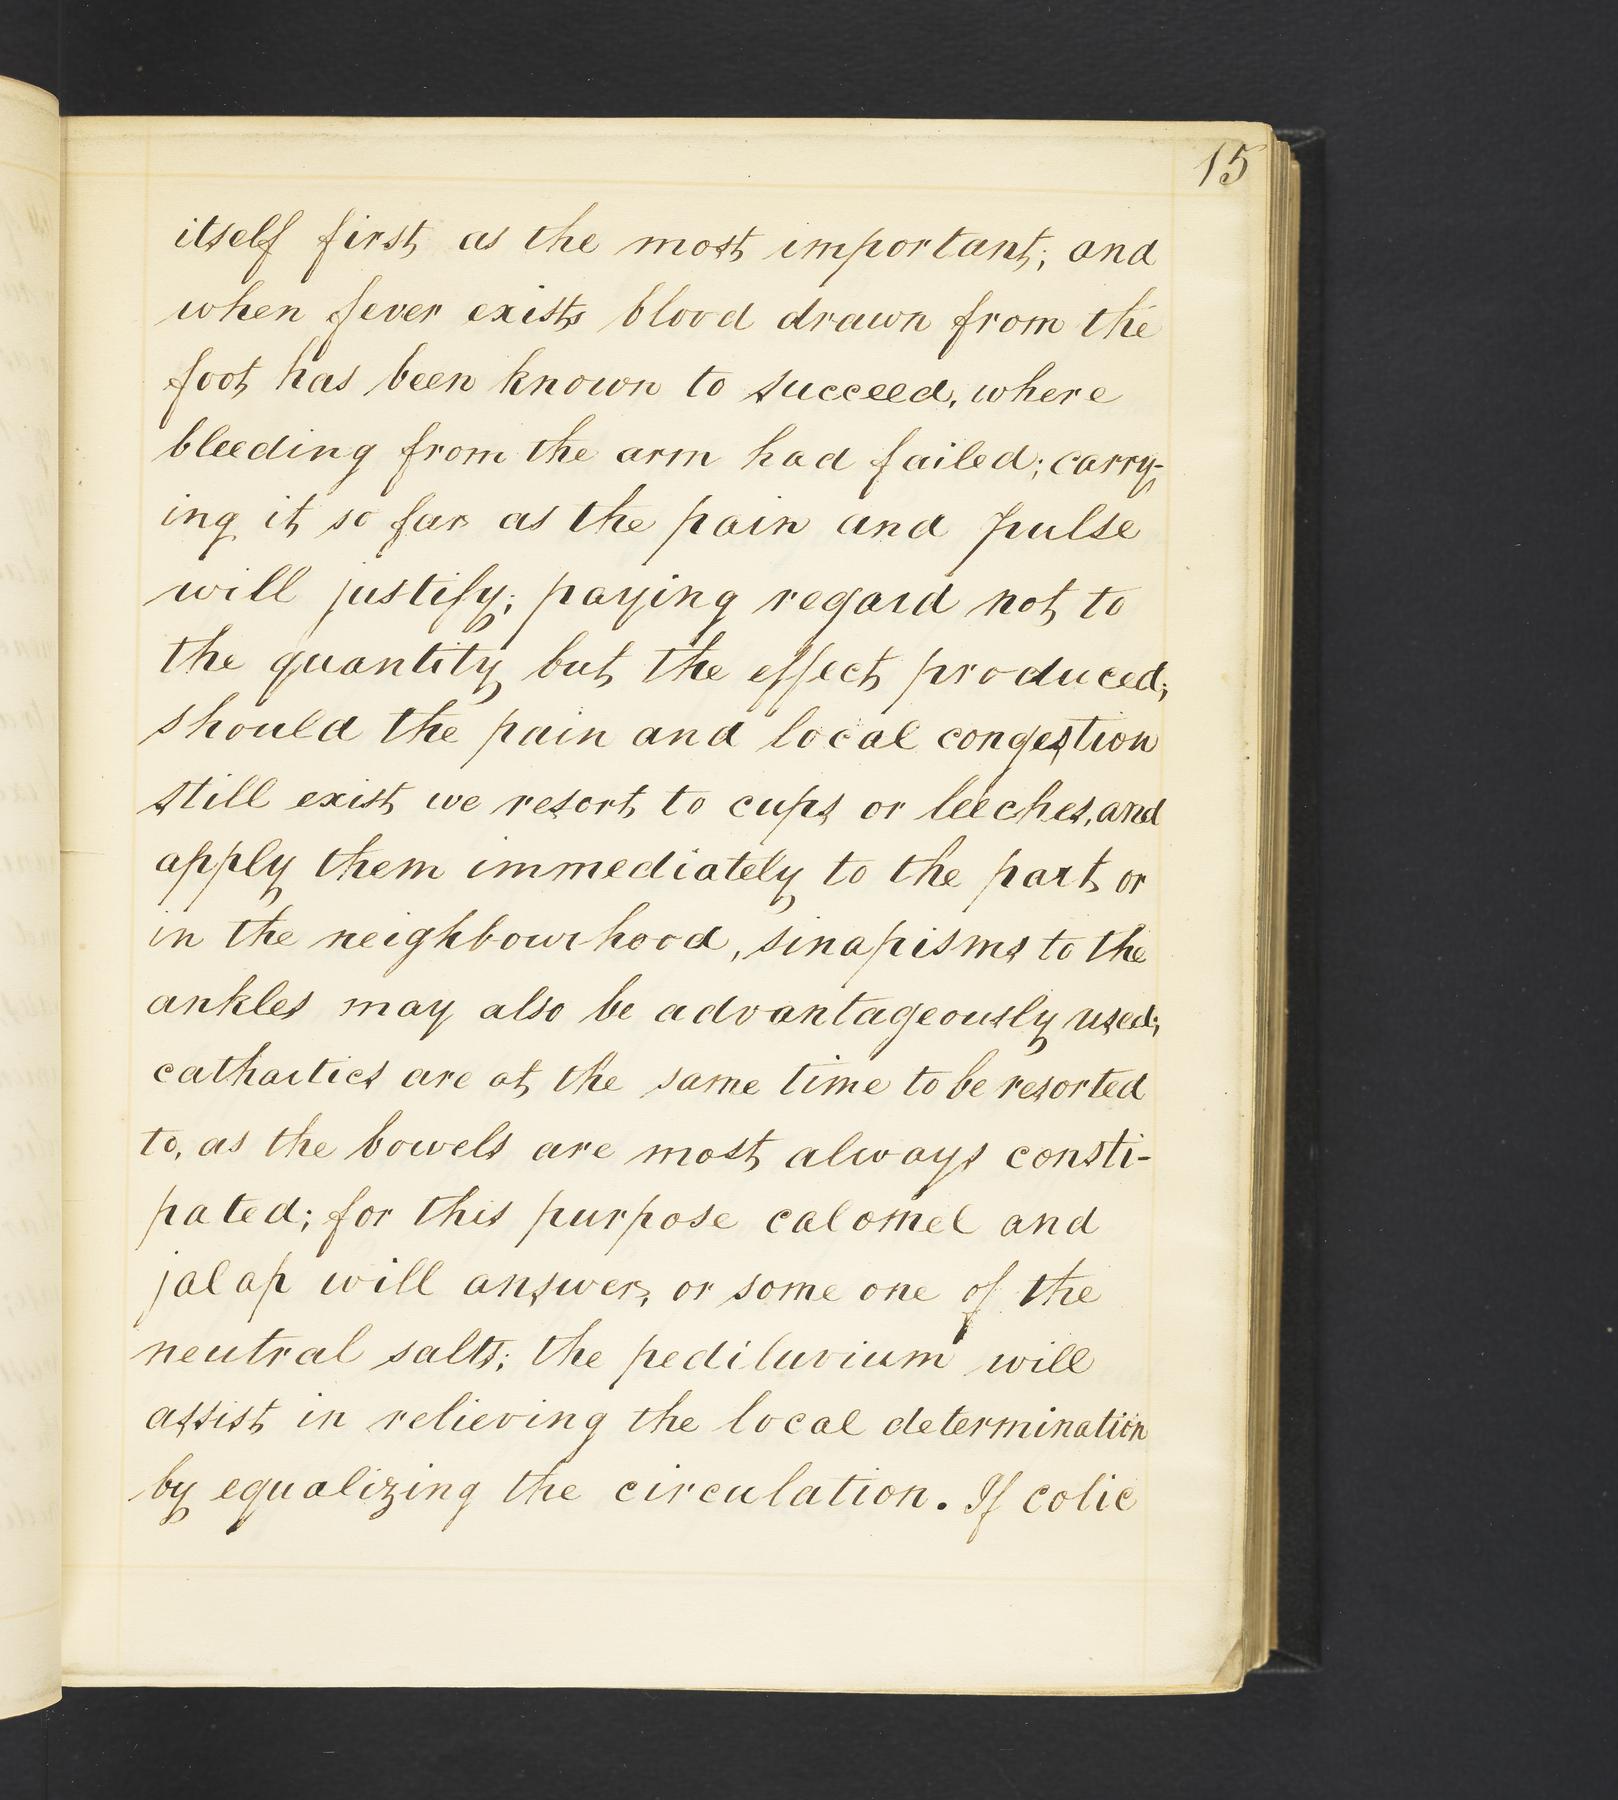 15
itself first as the most important; and
when fever exists blood drawn from the
foot has been known to succeed, where
bleeding from the arm had failed; carry-
ing it so far as the pain and pulse
will justify; paying regard not to
the quantity but the effect produced;
should the pain and local congestion
still exist we resort to cups or leeches, and
apply them immediately to the part or
in the neighbourhood, sinapisms to the
ankles may also be advantageously used;
cathartics are at the same time to be resorted
to, as the bowels are most always consti-
pated; for this purpose calomel and
jalap will answer, or some one of the
neutral salts; the pediluvium will
assist in relieving the local determination
by equalizing the circulation. If colic